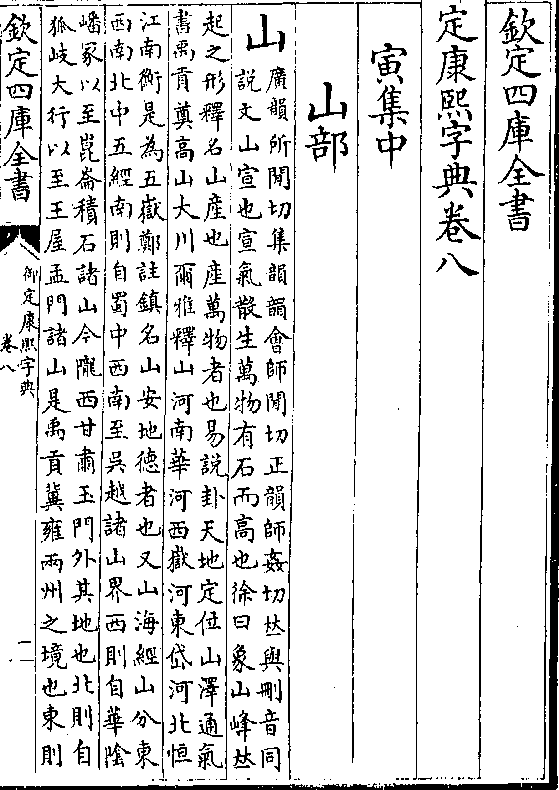 欽定四庫全書
定康熙字典卷八
寅集中
山部
山
廣韻所閒切集韻韻會師閒切正韻師姦切𠀤與刪音同
說文山宣也宣氣散生萬物有石而高也徐曰象山峰𠀤
起之形釋名山產也產萬物者也易說卦天地定位山澤通氣
書禹貢奠高山大川爾雅釋山河南華河西嶽河東岱河北恒
江南衡是為五嶽鄭註鎮名山安地德者也又山海經山分東
西南北中五經南則自蜀中西南至吳越諸山界西則自華陰
嶓冢以至崑崙積石諸山今隴西甘肅玉門外其地也北則自
狐岐大行以至王屋孟門諸山是禹貢冀雍兩州之境也東則
欽定四庫全書
御定康熙字典
卷八
一